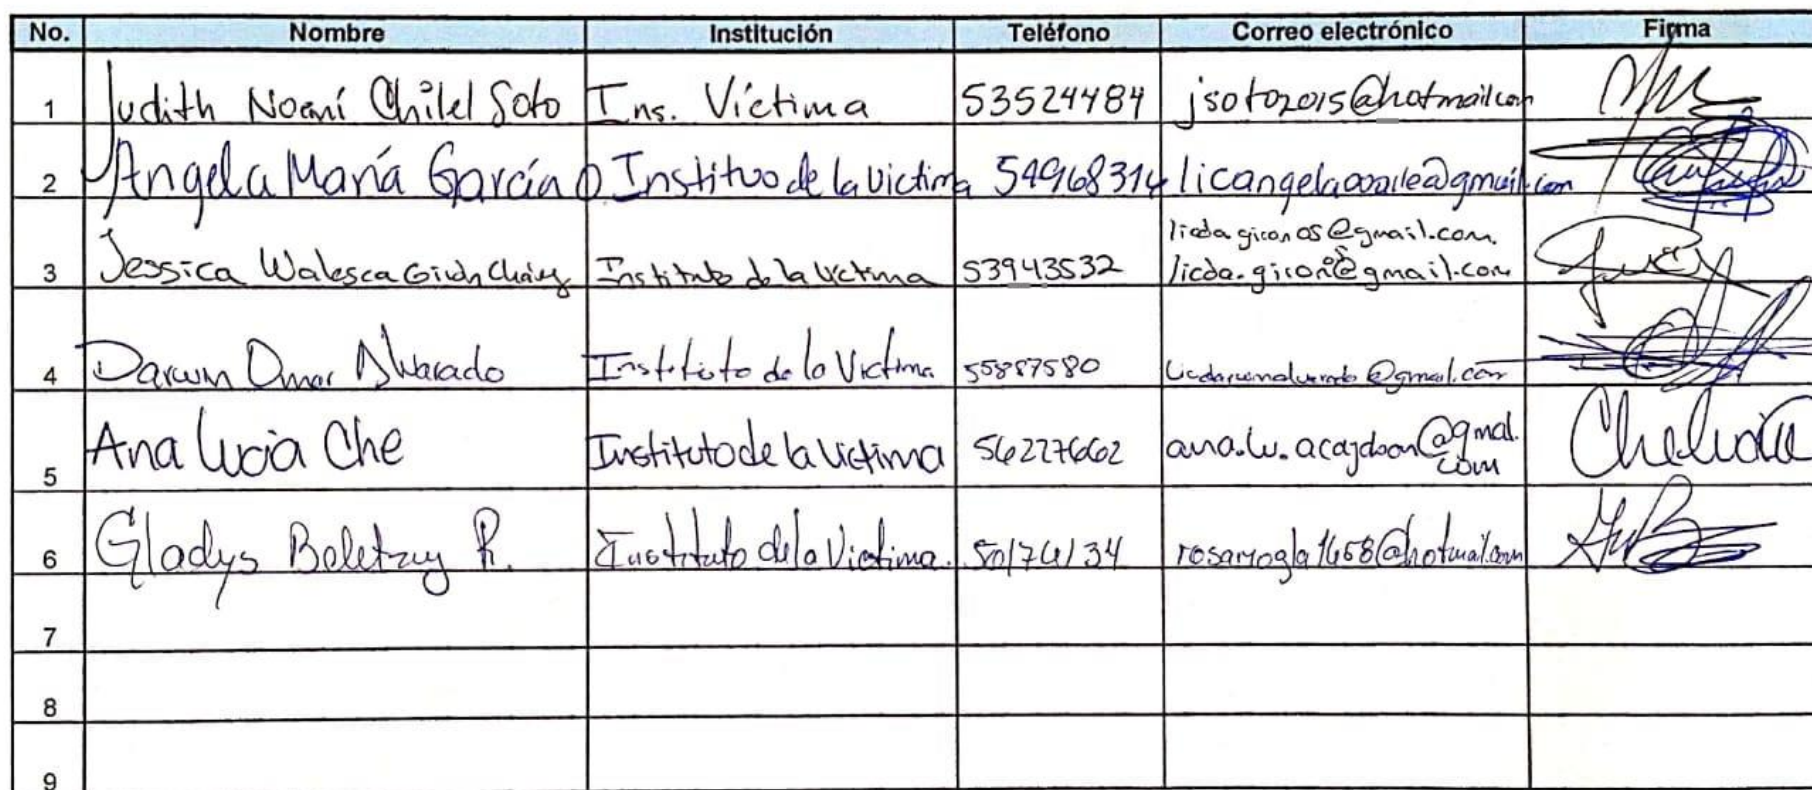 No. Nombre Institución Teléfono Correo electrónico Firma
1 Judith Noemí Chilel Soto Ins. Víctima 53524484 jsoto2015@hotmail.com
2 Angela María García O Instituo de la victima 54968314
3 Jessica Walesca Girón Chávez Instituto de la Victima 53943532 licda.giron05@gmail.com.
licda.giron@gmail.com
4 Darwin Omar Alvarado Instituto de la Victima 55887580
5 Ana Lucia Che Instituto de la Victima 56227662
6 Gladys Beletzuy R. Instituto de la Victima. 50174134 rosariogla1658@hotmail.com
7
8
9